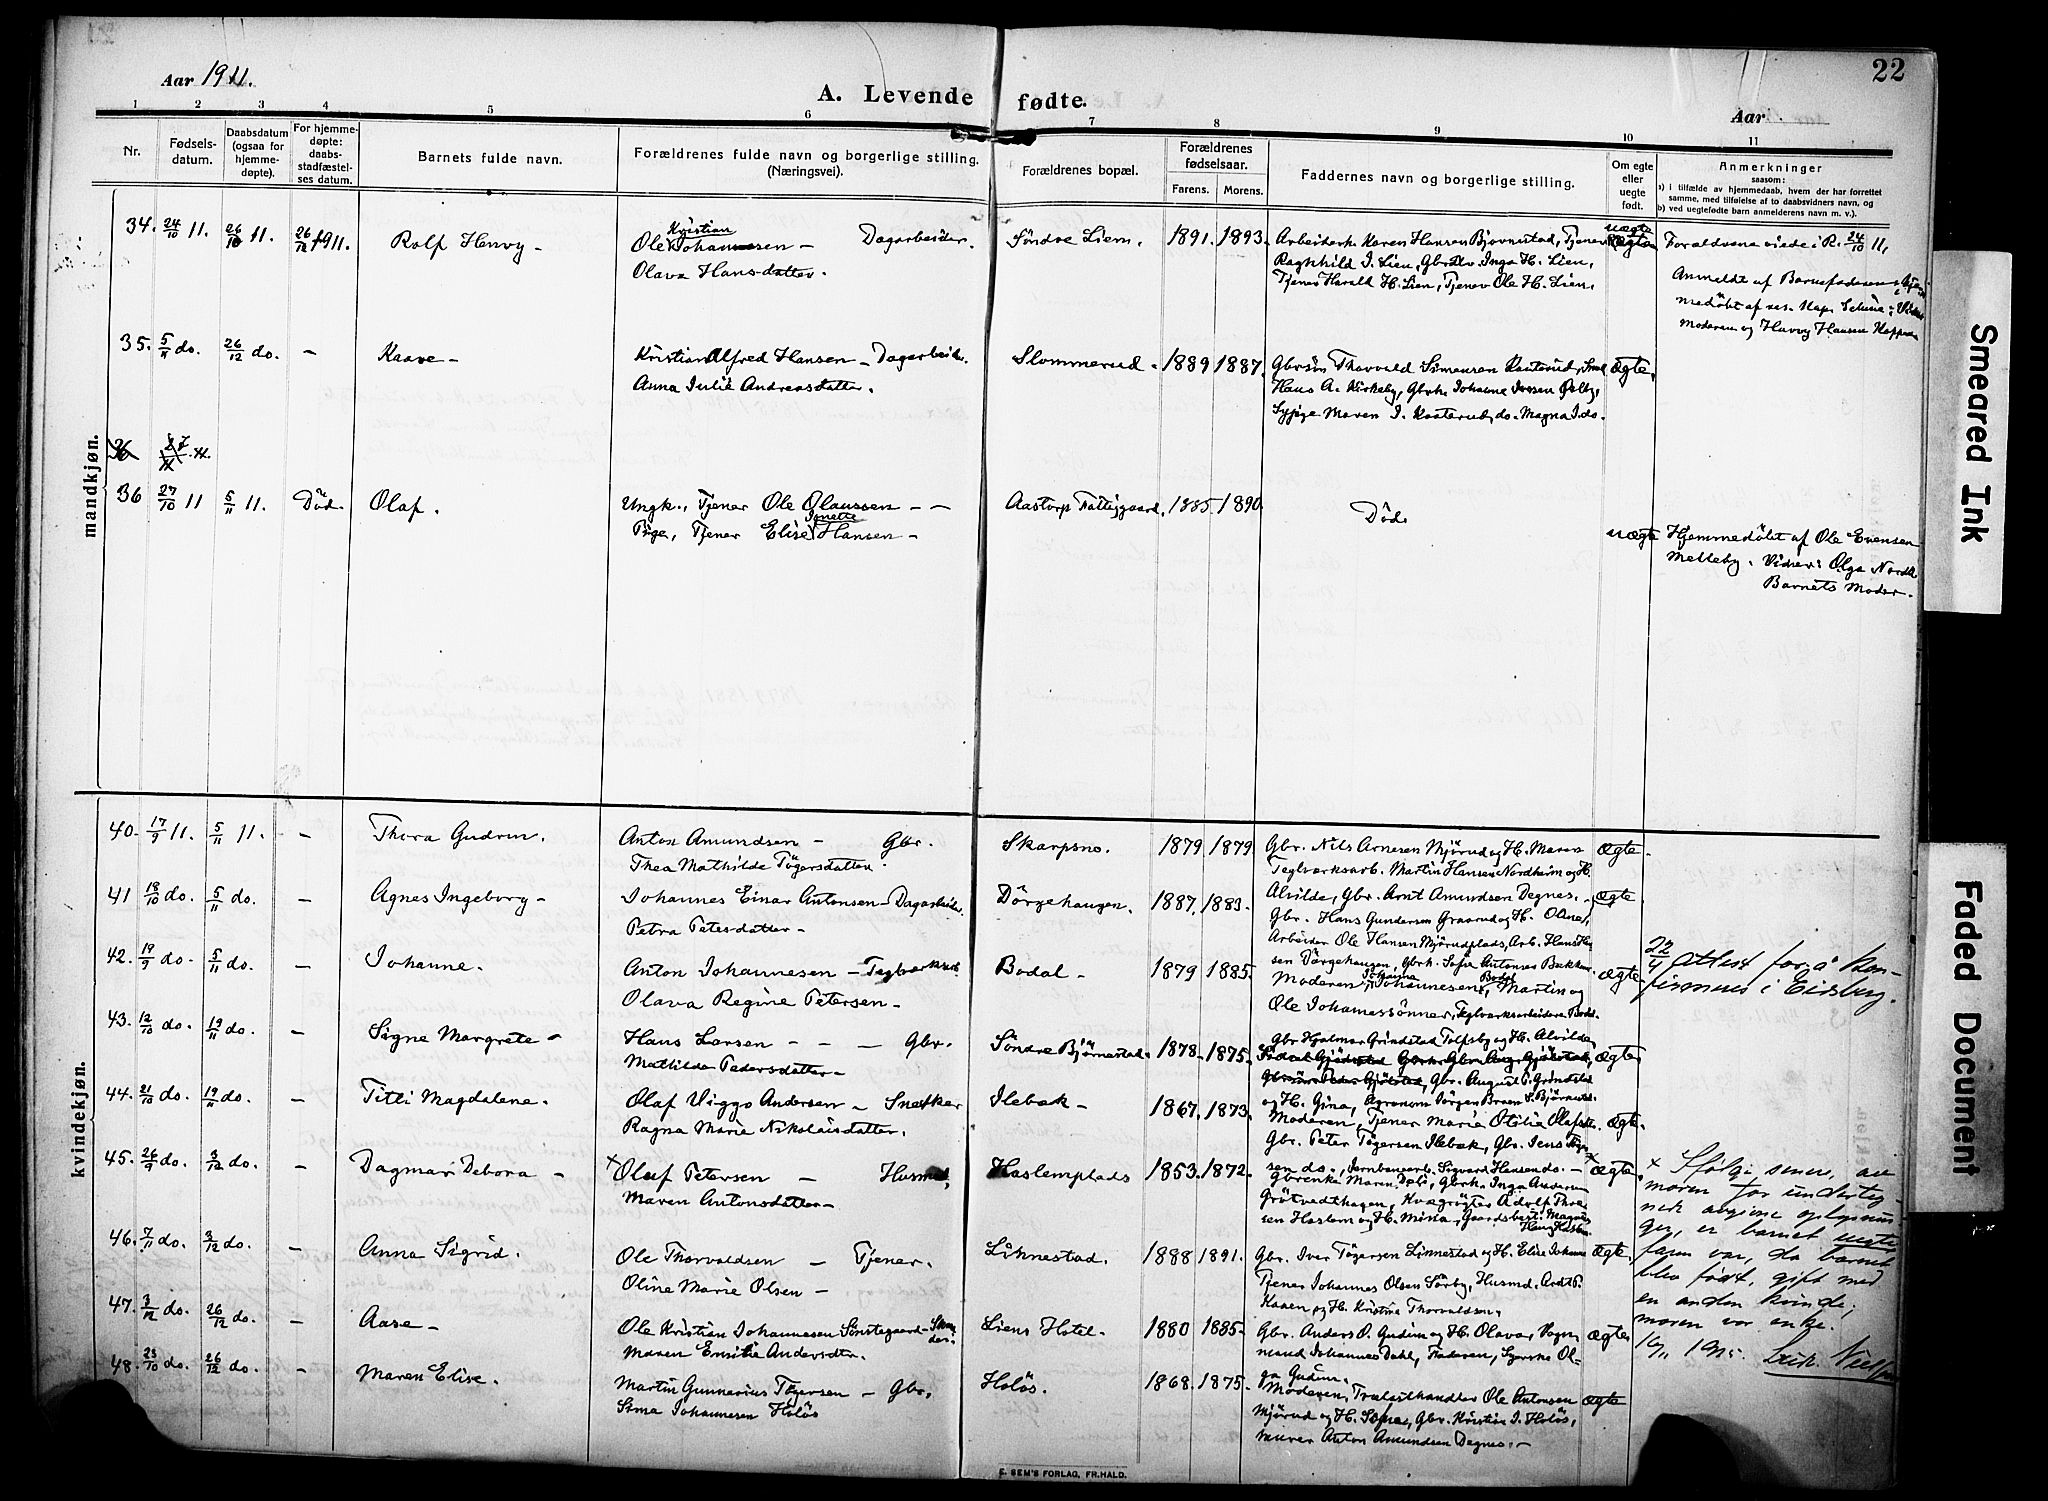 Aar 1911.
A. Levende fødte.
Aar
22
1 2 3 4 5 6 7 8 9 10 11
Nr.
Fødsels-
datum.
Daabsdatum
(ogsaa for
hjemme-
døpte).
For hjemme-
døpte:
daabs-
stadfæstel-
ses datum.
Barnets fulde navn.
Forældrenes fulde navn og borgerlige stilling.
(Næringsvei).
Forældrenes bopæl.
Forældrenes
fødselsaar.
Farens. Morens.
Faddernes navn og borgerlige stilling.
Om egte
eller
uegte
født.
Anmerkninger
saasom:
a) i tilfælde av hjemmedaab, hvem der har forrettet
samme, med tilføielse af to daabsvidners navn, og
b) ved uegtefødte barn anmelderens navn m. v.).
mandkjøn.
34. 24/10 11. 26/10 11. 26/12 1911. Rolf Henry -
Ole Kristian Johannesen - Dagarbeider.
Olava Hansdatter.
Søndre Liem. 1891. 1893.
Arbeiderk. Karen Hansen Bjørnestad, Tjener
Ragnhild I. Lien, Gbrdtr. Inga H. Lien,
Tjener Harald H. Lien, Tjener Ole H. Lien.
uægte
Forældrene viede i R. 24/10 11,
Anmeldt af Barnefaderen
medøbt af res. Kap.
Moderen og Harry Hansen
35. 5/11 do. 26/12 do. - Kaare -
Kristian Alfred Hansen - Dagarbeider.
Anna Julie Andreasdatter.
Slommerud - 1889 1887.
Gbrsøn Thorvald Simensen
Hans A. Kirkeby, Gbrk. Johanne Iversen
Sypige Maren I. Kasterud, do. Magna I. do.
ægte.
36
36 27/10 11 5/11 11. Død. Olaf.
Ungk., Tjener Ole Olaussen - -
Pige, Tjener Elise Jonette Hansen -
Aastorp Fattiggaard. 1885. 1890.
Død.
uægte
Hjemmedøbt af Ole Evensen
Melleby. Vidner: Olga
Barnets Moder.
kvindekjøn.
40. 17/9 11. 5/11 11. - Thora Gudrun.
Anton Amundsen - Gbr.
Thea Mathilde Tøgersdatter.
Skarpsno. 1879 1879
Gbr. Nils Arnesen Mjørud og H. Maren
Teglværksarb. Martin Hansen Nordheim og H.
ægte.
41 18/10 do. 5/11 do. - Agnes Ingeborg -
Johannes Einar Antonsen - Dagarbeider.
Petra Petersdatter -
Dørgehaugen. 1887. 1883.
Alvilde, Gbr. Arnt Amundsen Degnes.
Gbr. Hans Gundersen Graarud og H. Oline,
Arbeider Ole Hansen Mjørudplads, Arb. Hans
ægte
42. 19/9 do. 5/11 do. - Johanne.
Anton Johannesen - Teglværksarb.
Olava Regine Petersen -
Bodal - 1879 1885.
sen Dørgehaugen, Gbrk. Sofie Antonsen Bakken
Moderen, Johanna Johannesen Bodal, Martin og
Ole Johannessønner, Teglværksarbeidere Bodal.
ægte
22/4 Attest for å kon-
firmeres i Eidsberg.
43. 12/10 do. 19/11 do. - Signe Margrete -
Hans Larsen - - - Gbr.
Mathilde Pedersdatter -
Søndre Bjørnestad. 1878. 1875.
Gbr Hjalmar Grindstad Tolfsby og H. Alvilde,
Gbr. August P. Grindstad
og H. Gina, Agronom Jørgen Braen S. Bjørnestad.
ægte
44. 21/10 do. 19/11 do. - Titti Magdalene.
Olaf Viggo Andersen - Snekker
Ragna Marie Nikolaisdatter.
Ilebæk - 1867. 1873.
Moderen, Tjener Marie Otilie Olafsdtr.
Gbr. Peter Tøgersen Ilebæk, Gbr. Jens
ægte.
45. 26/9 do. 3/12 do. - Dagmar Debora -
x Oluf Petersen - Husmd.
Maren Antonsdatter -
Haslemplads 1853. 1872.
sen do., Jernbanearb. Sigvard Hansen do. -
Gbrenke Maren Dahl, Gbrk. Inga Andersen
Grøtvedthagen, Kvægrøgter Adolf Thor-
sen Haslem og H. Mina, Gaardsbest. Magnus
x ægte
x Ifølge senere, av
moren for underteg-
nede avgivne oplysnin-
ger, er barnet uegte
faren var, da barnet
blev født, gift med
en anden kvinde;
moren var enke.
46. 7/11 do. 3/12 do. - Anna Sigrid.
Ole Thorvaldsen - Tjener.
Oline Marie Olsen -
Linnestad. 1888 1891.
Gbr. Iver Tøgersen Linnestad og H. Elise Johanne
Tjener Johannes Olsen Sørby, Husmd. Arnt P.
Kaaen og H. Kristine Thorvaldsen.
ægte.
47. 3/12 do. 26/12 do. - Aase -
Ole Kristian Johannesen Sønstegaard -
Maren Emilie Andersdtr.
Liens Hotel - 1880 1885.
Gbr. Anders O. Gudim og H. Olava, Vogn-
mand Johannes Dahl, Faderen, Syerske Ol-
ga Gudim.
ægte
48. 23/10 do. 26/12 do. - Maren Elise.
Martin Gunnerius Tøgersen - Gbr.
Sina Johannesen Holøs
Holøs. 1868. 1875.
Moderen, Trælasthandler Ole Antonsen
Mjørud og H. Sofie, Gbr. Kristian I. Holøs,
Murer Anton Amundsen Degnes. -
ægte
E. SEM'S FORLAG, FR.HALD.
Smeared Ink
Faded Document